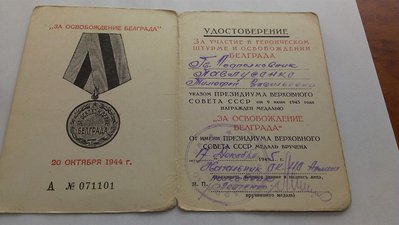 „ЗА ОСВОБОЖДЕНИЕ БЕЛГРАДА“
ЗА ОСВОБОЖДЕНИЕ
БЕЛГРАДА
20 ОКТЯБРЯ 1944 г.
А № 071101
УДОСТОВЕРЕНИЕ
ЗА УЧАСТИЕ В ГЕРОИЧЕСКОМ
ШТУРМЕ И ОСВОБОЖДЕНИИ
БЕЛГРАДА
Гв. Подполковник
УКАЗОМ ПРЕЗИДИУМА ВЕРХОВНОГО
СОВЕТА СССР от 9 июня 1945 года
НАГРАЖДЕН МЕДАЛЬЮ
„ЗА ОСВОБОЖДЕНИЕ
БЕЛГРАДА“
ОТ ИМЕНИ ПРЕЗИДИУМА ВЕРХОВНОГО
СОВЕТА СССР МЕДАЛЬ ВРУЧЕНА
17 194 г.
Начальник
М. П.
вручившего медаль